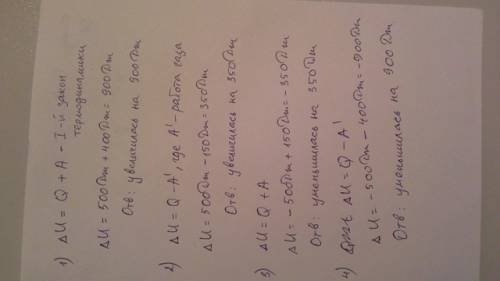 1) ΔU = Q + A - I-й закон
термодинамики
ΔU = 500Дж + 400Дж = 900Дж
Отв: увеличилась на 900Дж
2) ΔU = Q - A', где A' - работа газа
ΔU = 500Дж - 150Дж = 350Дж
Отв: увеличилась на 350Дж
3) ΔU = Q + A
ΔU = -500Дж + 150Дж = -350Дж
Отв: уменьшилась на 350Дж
4) ΔU = Q - A'
ΔU = -500Дж - 400Дж = -900Дж
Отв: уменьшилась на 900 Дж